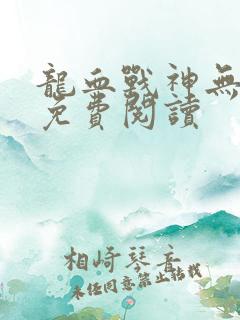 龍血戰神無
免費閱讀
相崎琴音
未经同意禁止转载